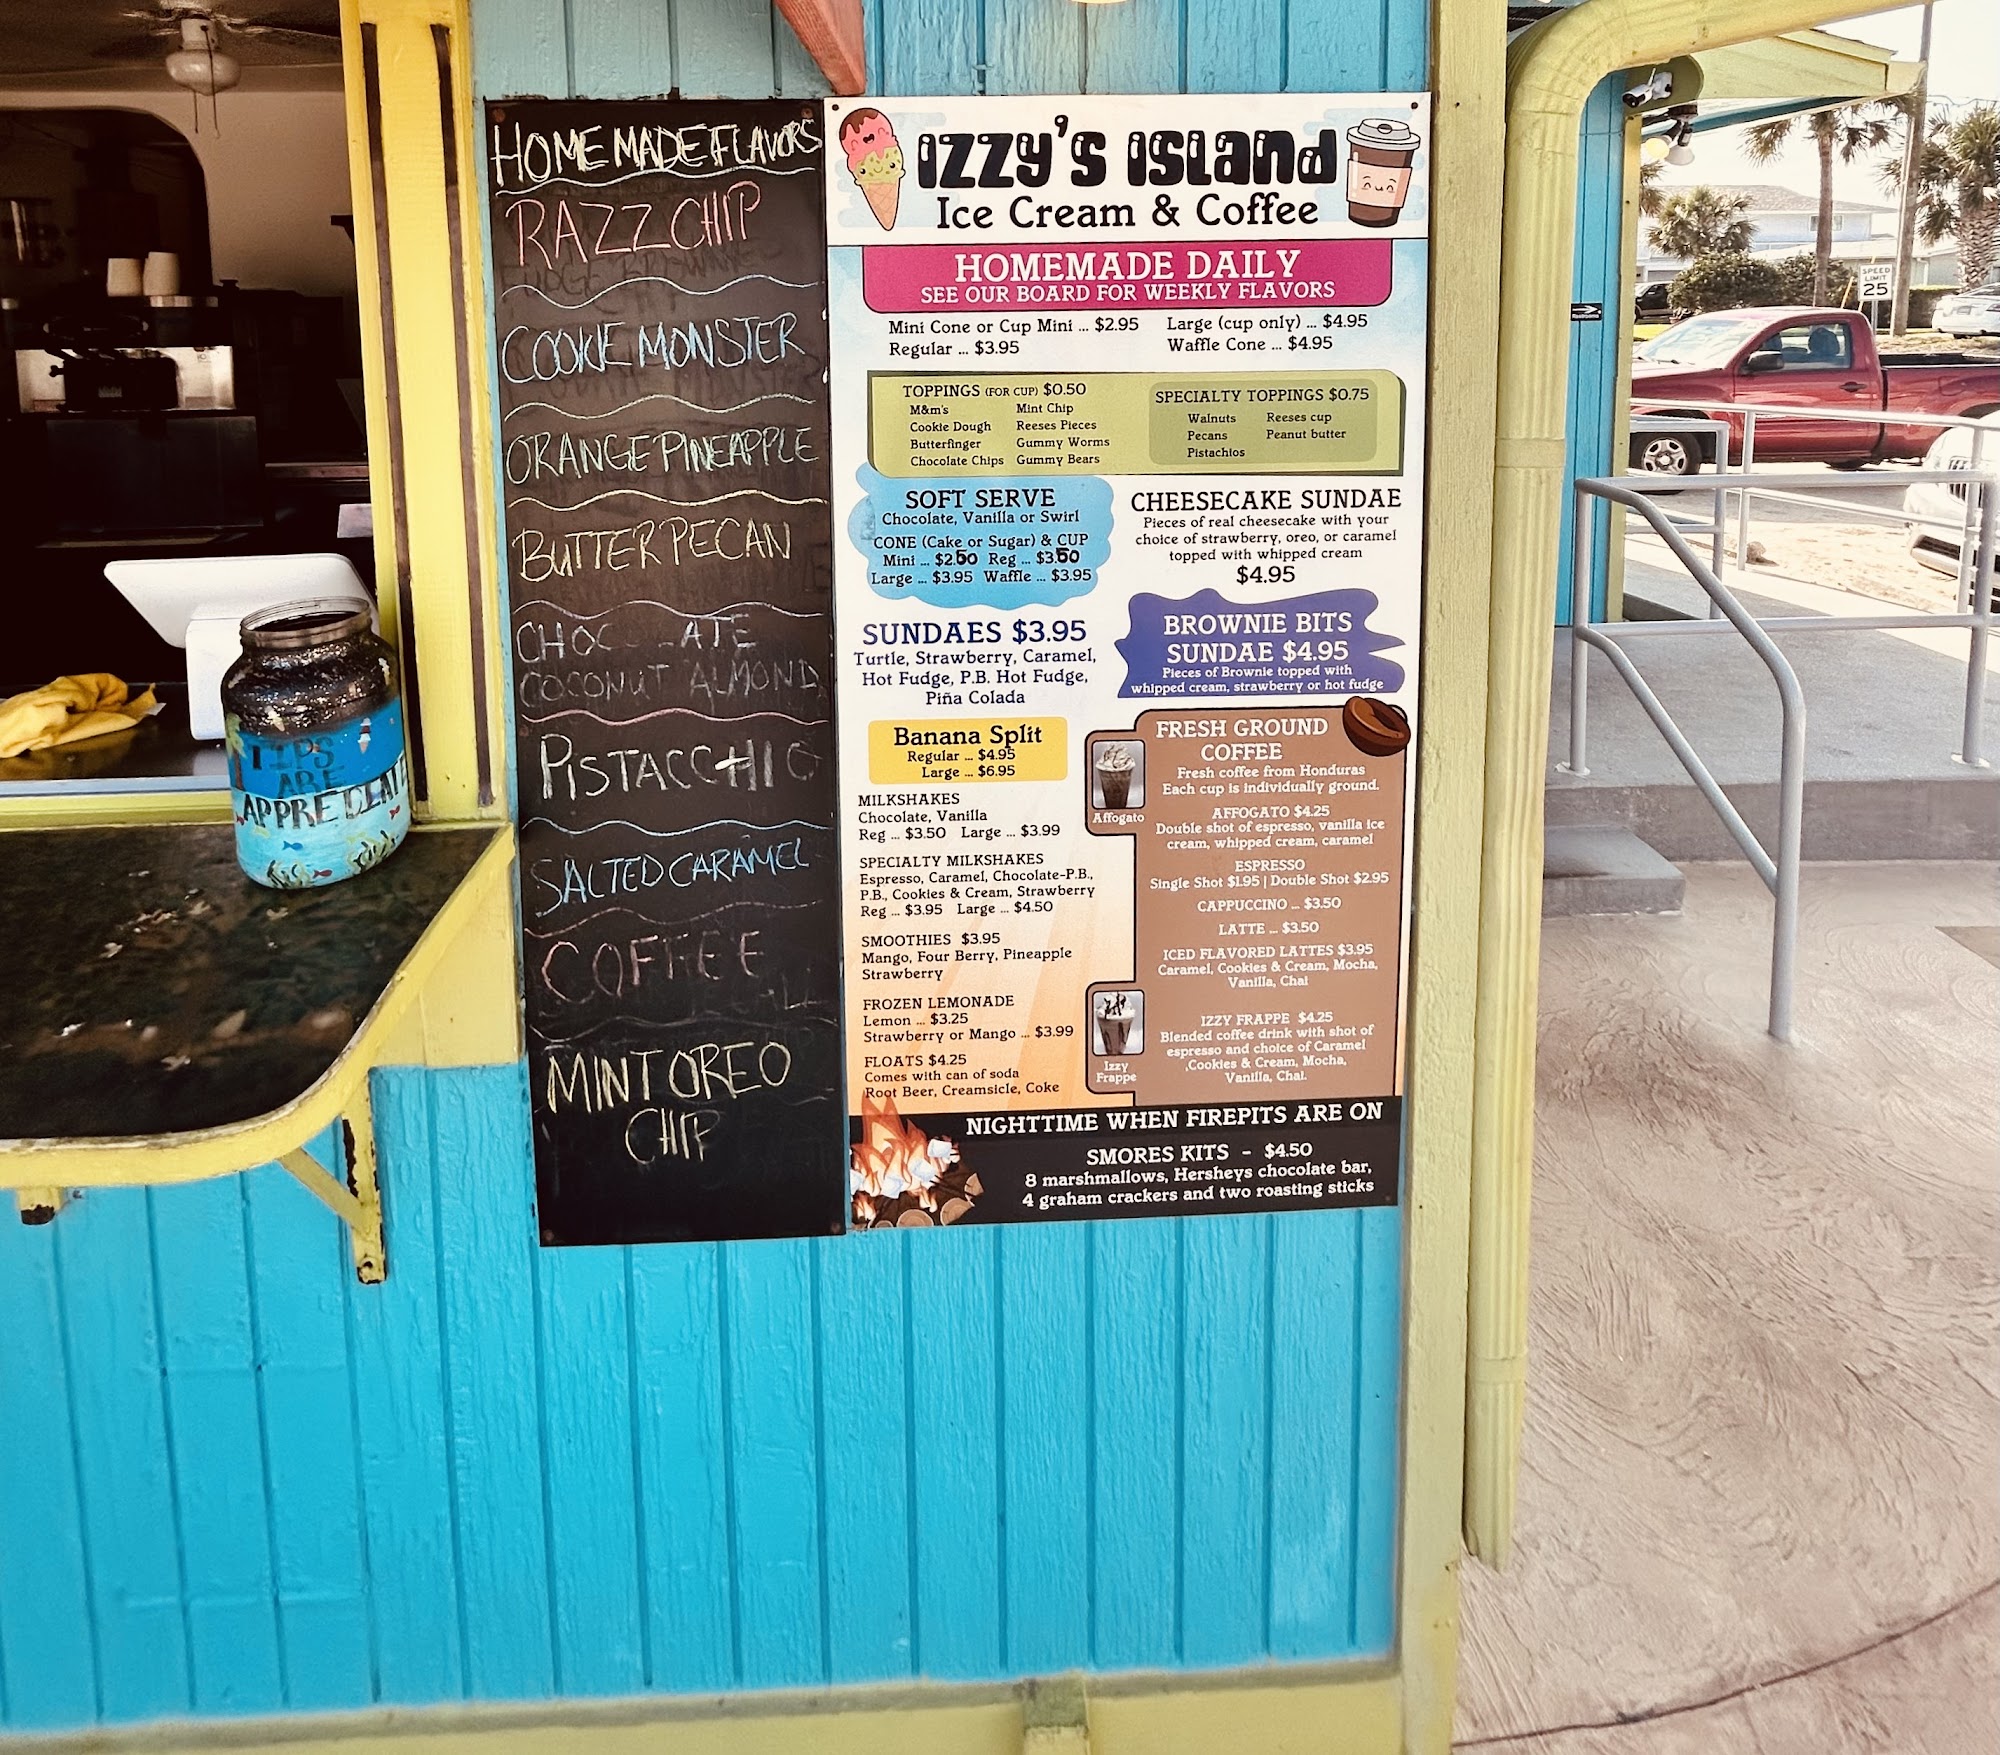 HOMEMADE FLAVORS
RAZZ CHIP
COOKIE MONSTER
ORANGE PINEAPPLE
BUTTER PECAN
CHOCOLATE
COCONUT ALMOND
PISTACCHIO
SALTED CARAMEL
COFFEE
MINT OREO
CHIP
IZZY'S ISLAND
Ice Cream & Coffee
HOMEMADE DAILY
SEE OUR BOARD FOR WEEKLY FLAVORS
Mini Cone or Cup Mini ... $2.95
Regular ... $3.95
Large (cup only) ... $4.95
Waffle Cone ... $4.95
TOPPINGS (FOR CUP) $0.50
M&m's
Cookie Dough
Butterfinger
Chocolate Chips
Mint Chip
Reeses Pieces
Gummy Worms
Gummy Bears
SPECIALTY TOPPINGS $0.75
Walnuts
Pecans
Pistachios
Reeses cup
Peanut butter
SOFT SERVE
Chocolate, Vanilla or Swirl
CONE (Cake or Sugar) & CUP
Mini ... $2.50 Reg ... $3.50
Large ... $3.95 Waffle ... $3.95
CHEESECAKE SUNDAE
Pieces of real cheesecake with your
choice of strawberry, oreo, or caramel
topped with whipped cream
$4.95
SUNDAES $3.95
Turtle, Strawberry, Caramel,
Hot Fudge, P.B. Hot Fudge,
Piña Colada
BROWNIE BITS
SUNDAE $4.95
Pieces of Brownie topped with
whipped cream, strawberry or hot fudge
Banana Split
Regular ... $4.95
Large ... $6.95
MILKSHAKES
Chocolate, Vanilla
Reg ... $3.50 Large ... $3.99
SPECIALTY MILKSHAKES
Espresso, Caramel, Chocolate-P.B.,
P.B., Cookies & Cream, Strawberry
Reg ... $3.95 Large ... $4.50
SMOOTHIES $3.95
Mango, Four Berry, Pineapple
Strawberry
FROZEN LEMONADE
Lemon ... $3.25
Strawberry or Mango ... $3.99
FLOATS $4.25
Comes with can of soda
Root Beer, Creamsicle, Coke
FRESH GROUND
COFFEE
Fresh coffee from Honduras
Each cup is individually ground.
Affogato
AFFOGATO $4.25
Double shot of espresso, vanilla ice
cream, whipped cream, caramel
ESPRESSO
Single Shot $1.95 | Double Shot $2.95
CAPPUCCINO ... $3.50
LATTE ... $3.50
ICED FLAVORED LATTES $3.95
Caramel, Cookies & Cream, Mocha,
Vanilla, Chai
Izzy
Frappe
IZZY FRAPPE $4.25
Blended coffee drink with shot of
espresso and choice of Caramel
,Cookies & Cream, Mocha,
Vanilla, Chai.
NIGHTTIME WHEN FIREPITS ARE ON
SMORES KITS - $4.50
8 marshmallows, Hersheys chocolate bar,
4 graham crackers and two roasting sticks
TIPS
ARE
APPRECIAT
SPEED
LIMIT
25
Restrooms